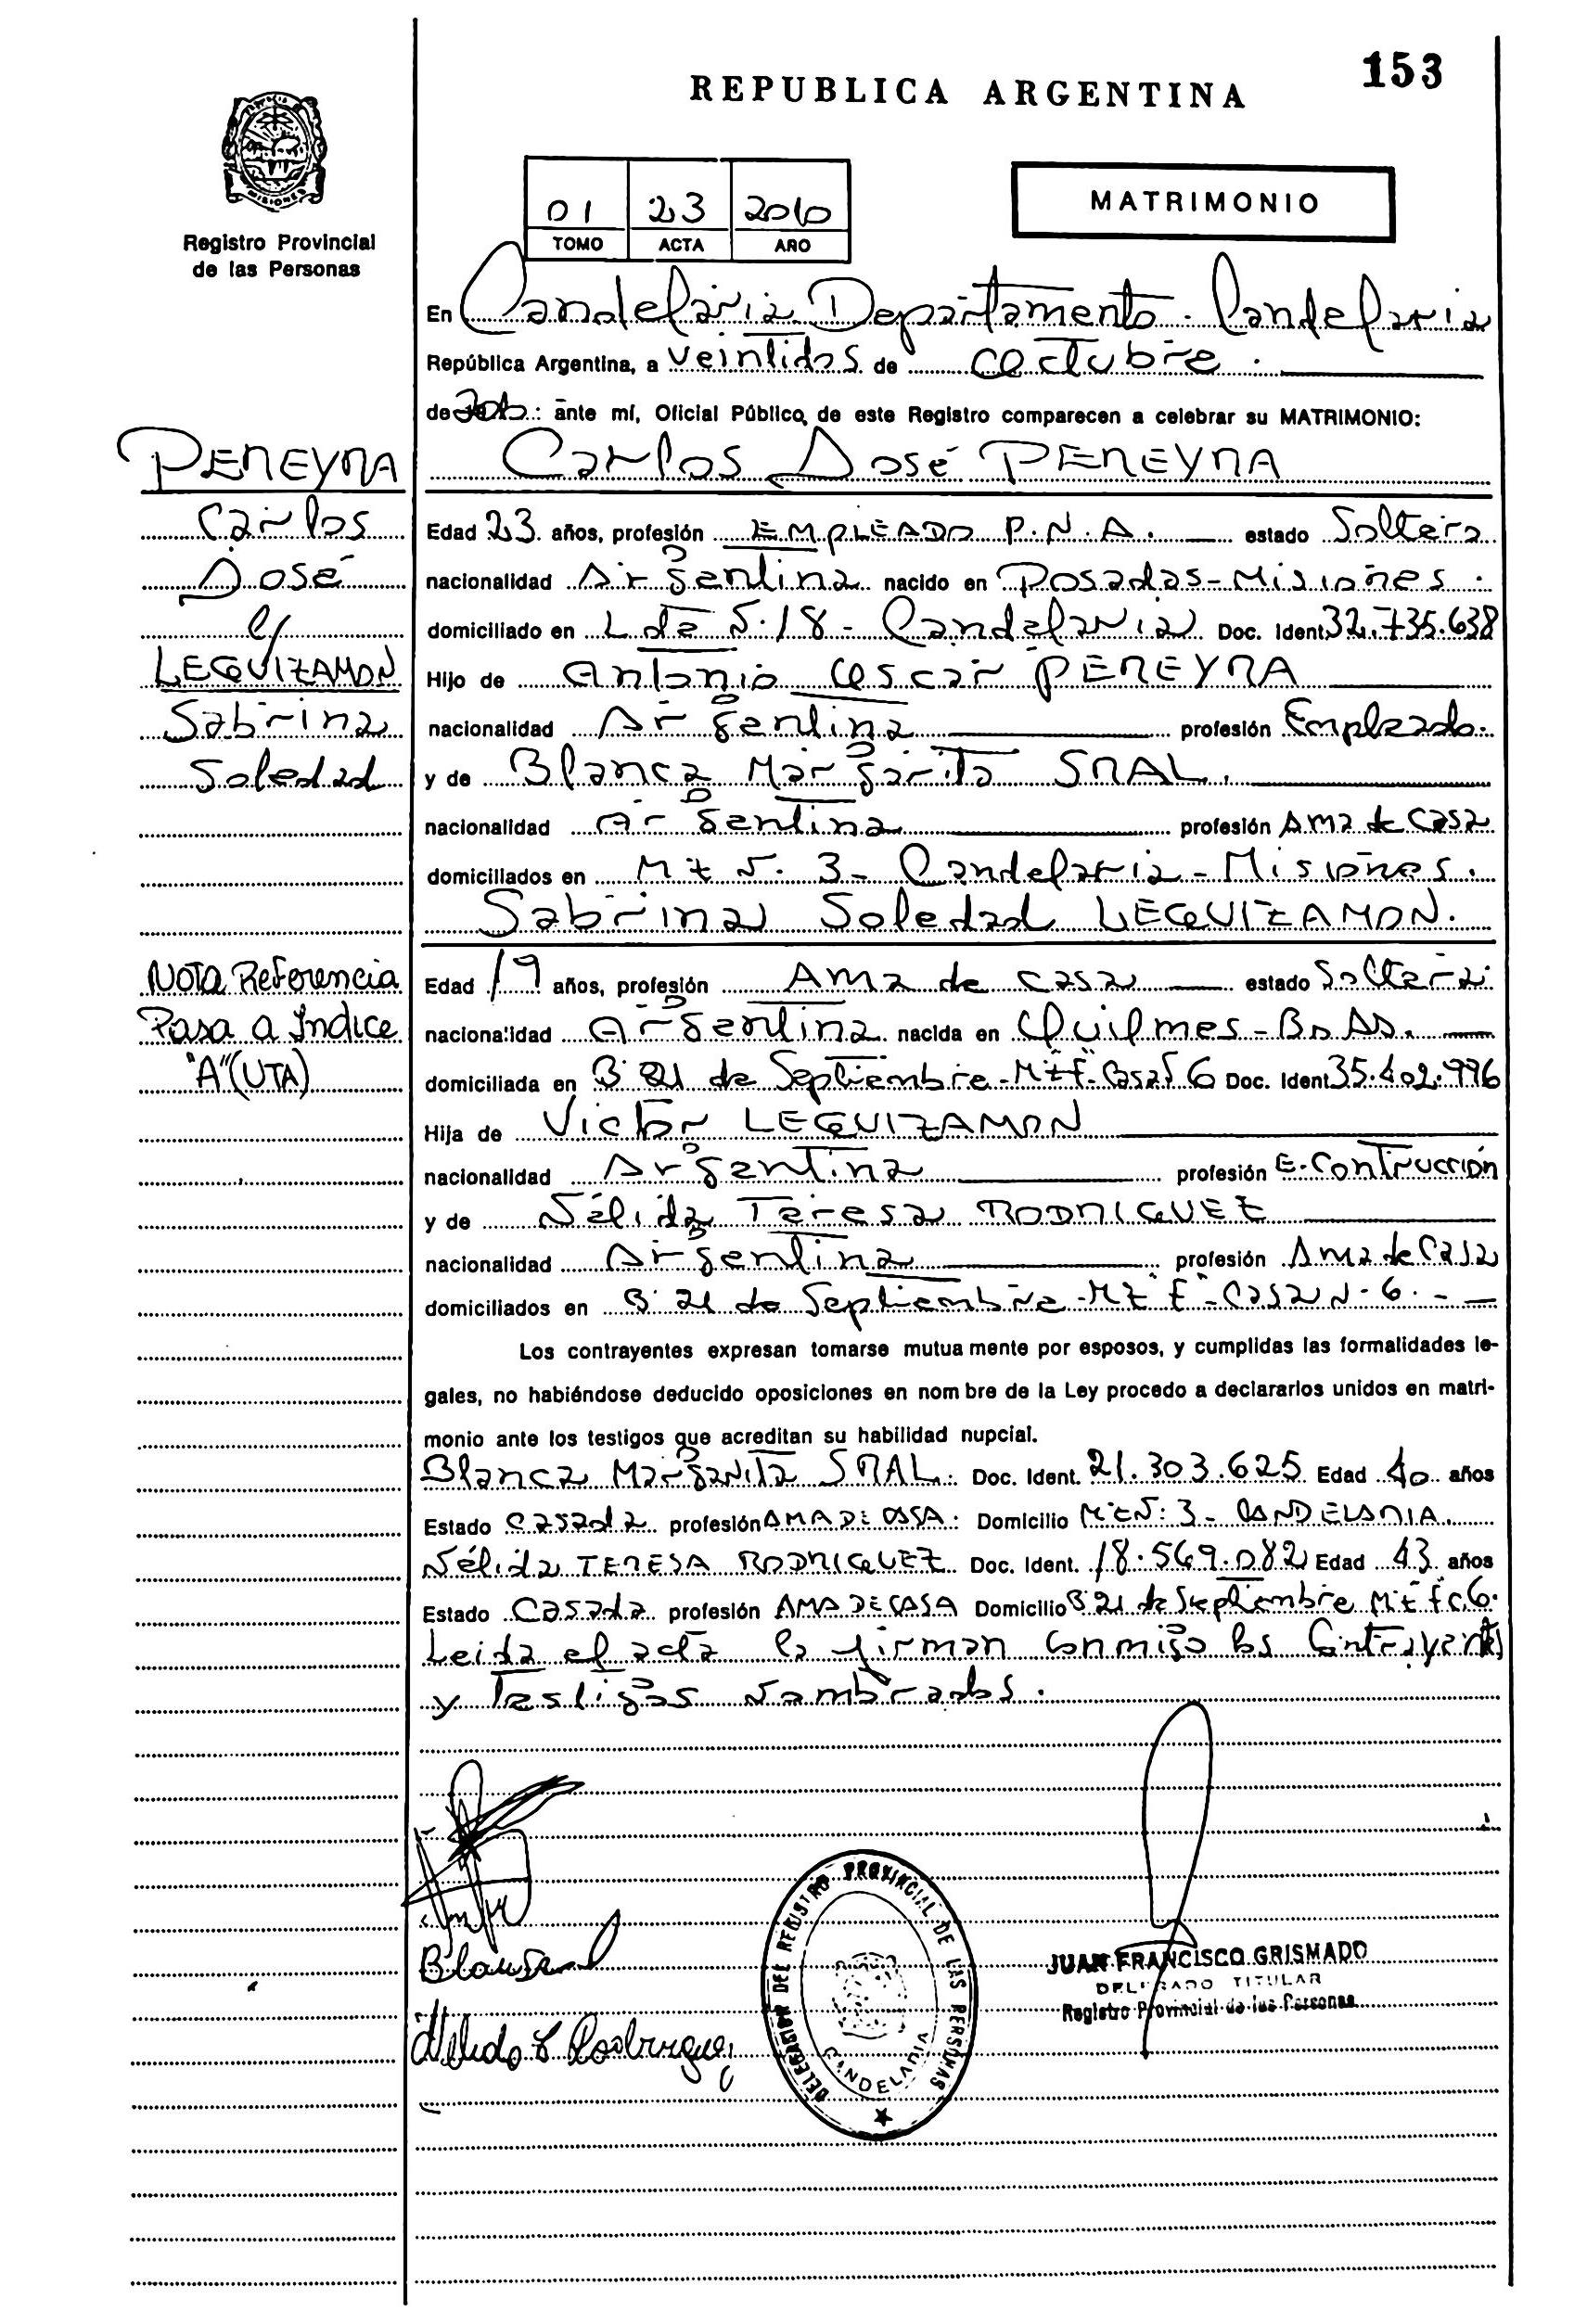 153
REPUBLICA ARGENTINA
MISIONES
Registro Provincial
de las Personas
01 23 2010
TOMO ACTA AÑO
MATRIMONIO
En Candelaria Departamento - Candelaria
República Argentina, a veintidos de octubre.
de 2010: ante mí, Oficial Público, de este Registro comparecen a celebrar su MATRIMONIO:
PEREYRA
Carlos José PEREYRA
Carlos
Edad 23 años, profesión EMPLEADO P.N.A. estado Soltero
José
nacionalidad Argentina nacido en Posadas-Misiones.
y
domiciliado en Lote N.18 - Candelaria Doc. Ident 32.735.638
LEGUIZAMON
Hijo de Antonio Oscar PEREYRA
Sabrina
nacionalidad Argentina profesión Empleado.
Soledad
y de Blanca Margarita SRAL.
nacionalidad Argentina profesión Ama de Casa
domiciliados en Mz N. 3 - Candelaria - Misiones.
Sabrina Soledad LEGUIZAMON.
NOTA Referencia
Edad 19 años, profesión Ama de casa estado Soltera
Pasa a Indice
nacionalidad Argentina nacida en Quilmes - Bs As.
"A" (UTA)
domiciliada en B° 21 de Septiembre - Mz "F" - Casa N 6 Doc. Ident 35.402.996
Hija de Victor LEGUIZAMON
nacionalidad Argentina profesión E. Contrucción
y de Nélida Teresa RODRIGUEZ
nacionalidad Argentina profesión Ama de Casa
domiciliados en B° 21 de Septiembre - Mz "F" - Casa N. 6. -
Los contrayentes expresan tomarse mutua mente por esposos, y cumplidas las formalidades le-
gales, no habiéndose deducido oposiciones en nom bre de la Ley procedo a declararlos unidos en matri-
monio ante los testigos que acreditan su habilidad nupcial.
Blanca Margarita SRAL. Doc. Ident. 21.303.625 Edad 40 años
Estado Casada profesión AMA DE CASA. Domicilio Mz N: 3 - CANDELARIA.
Nélida TERESA RODRIGUEZ Doc. Ident. 18.569.082 Edad 43 años
Estado Casada profesión AMA DE CASA Domicilio B° 21 de Septiembre Mz F C.6.
Leida el acta la firman conmigo los Contrayentes
y Testigos Nombrados.
Nelida T Rodriguez
DELEGACION DEL REGISTRO PROVINCIAL DE LAS PERSONAS
CANDELARIA
JUAN FRANCISCO GRISMADO
DELEGADO TITULAR
Registro Provincial de las Personas